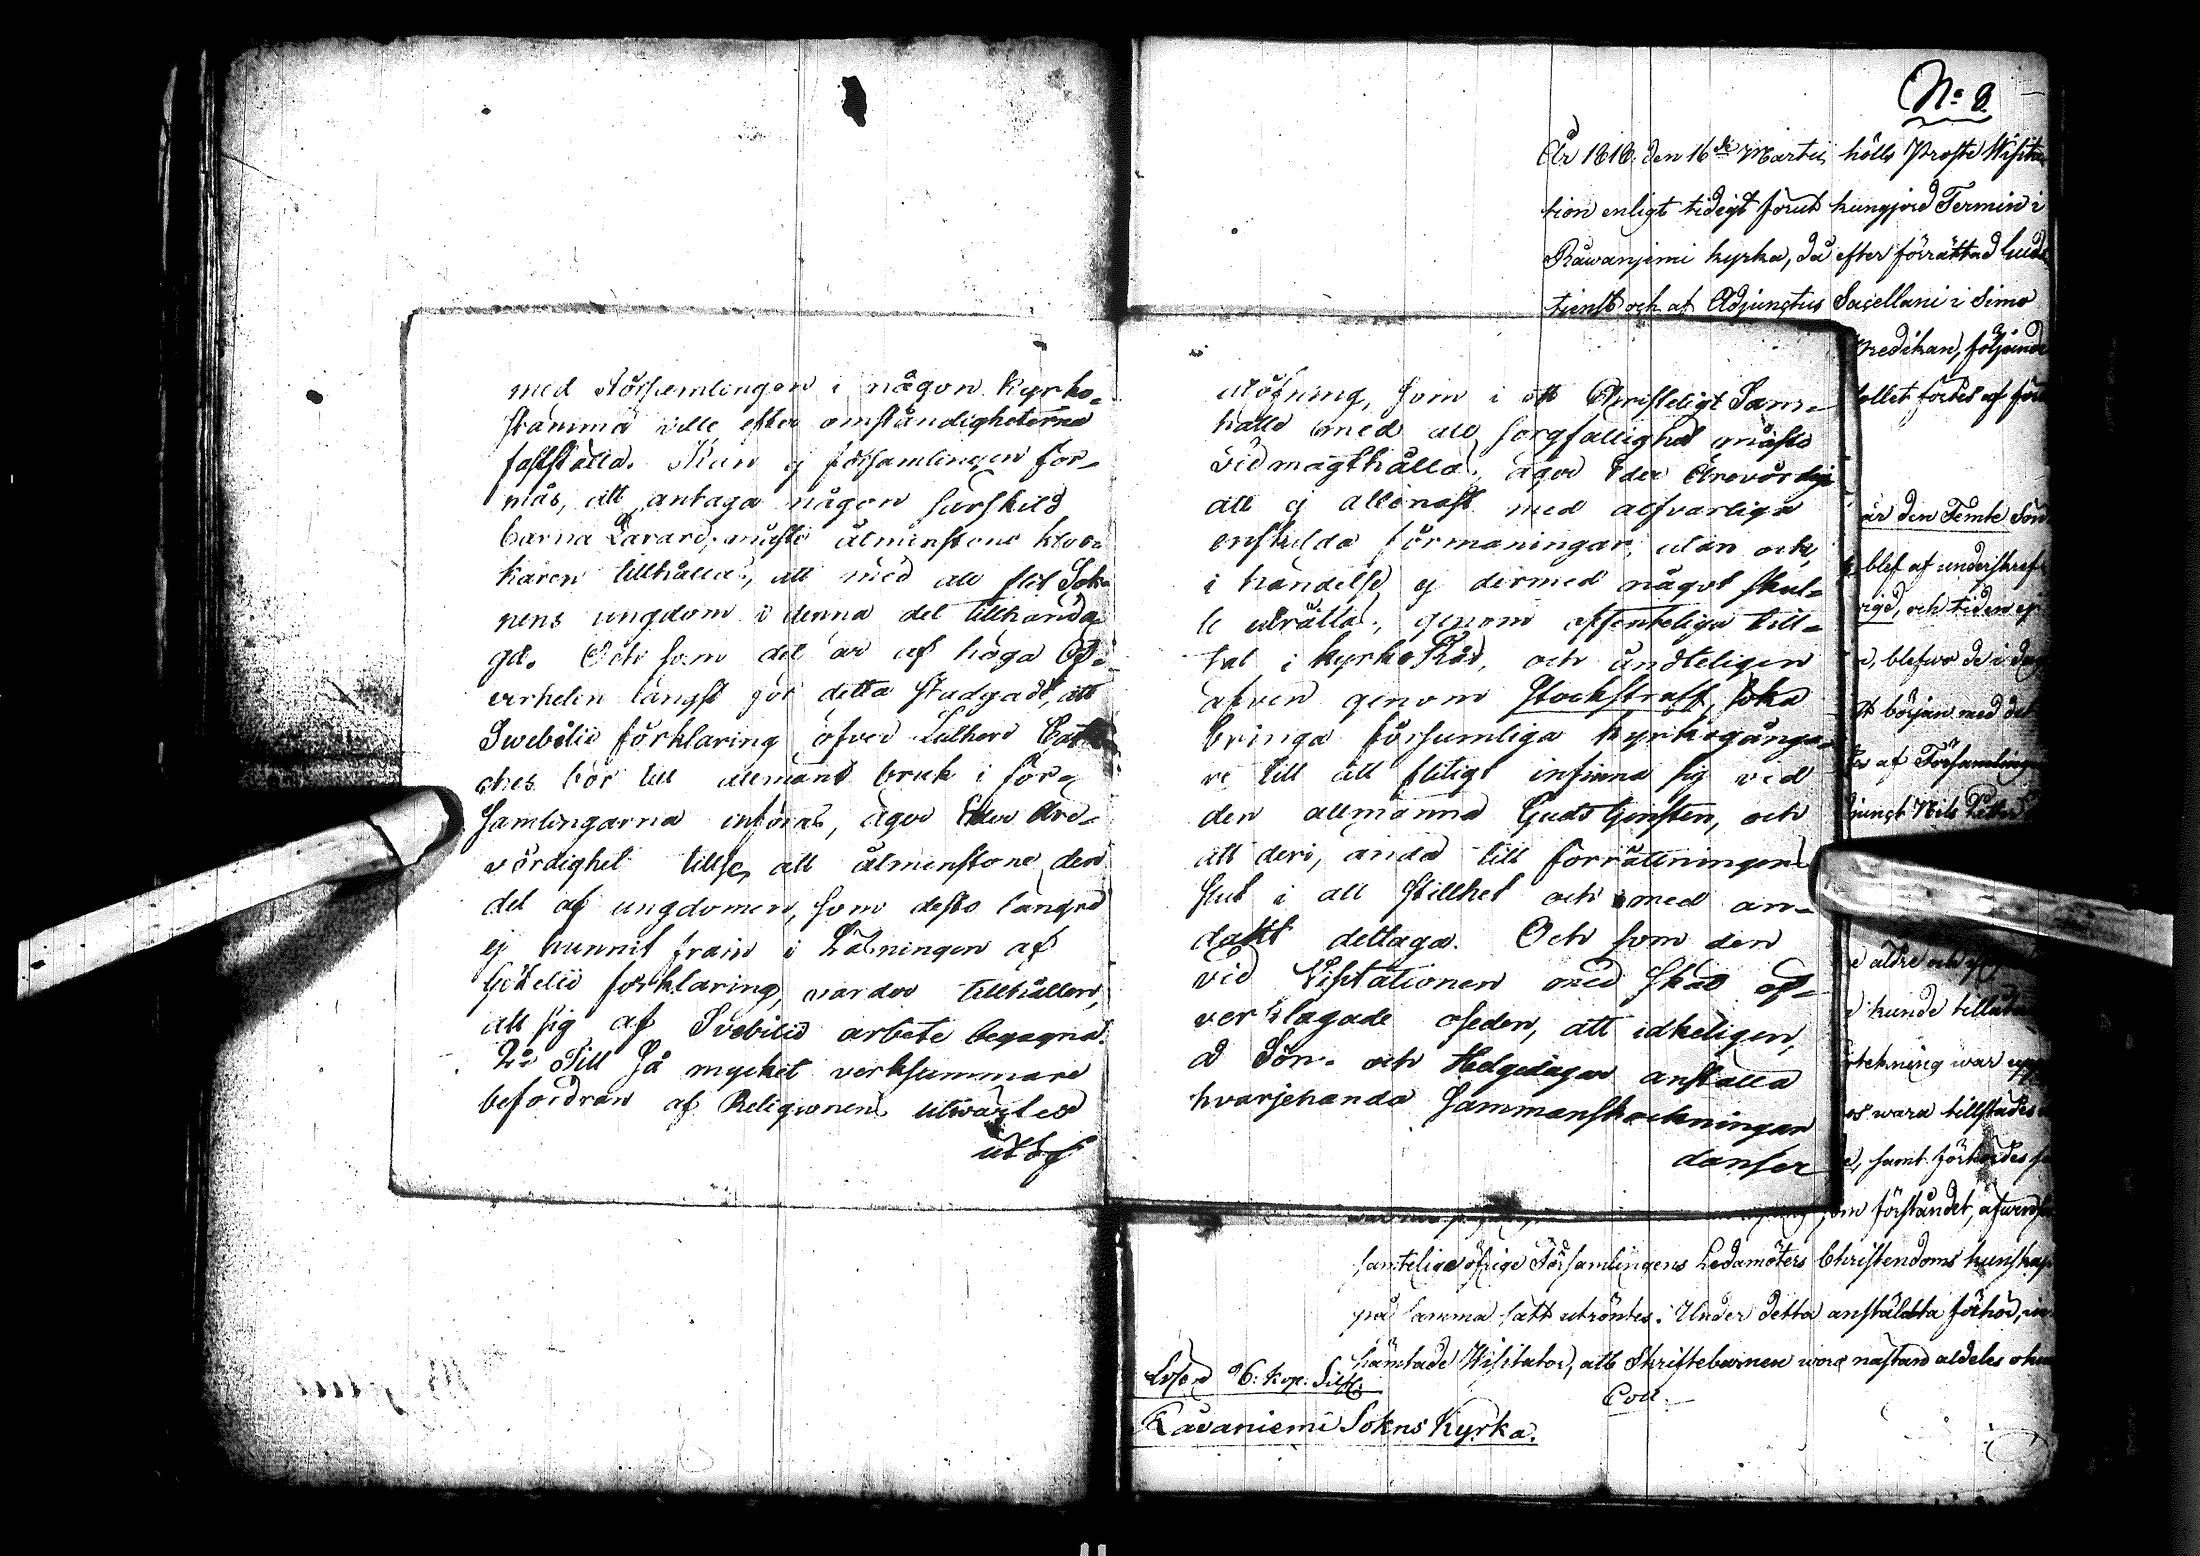 med Församlingen i någon Kyrko-
stämma ville efter omständigheterna
fastställa. Kan ej församlingen för-
mås, att antaga någon särskild
barna Lärare, måste åtminstone kloc-
karen tillhållas, att med all flit Sok-
nens ungdom i denna del tillhanda
gå. Och som det är af höga Öf-
verheten längst för detta stadgadt, att
Swebilii förklaring öfver Lutheri Cate-
ches bör till allmänt bruk i för-
samlingarna införas, äger Eder Äre-
vördighet tillse, att åtminstone den
del af ungdomen, som desto längre
ej hunnit fram i Läsningen af
förklaring, varder tillhållen,
att sig af Svebilii arbete begagna.
2o Till så mycket verksammare
befordran af Religionens utwärtes
utöf
utöfning, som i ett Christeligt Sam-
hälle med all sorgfällighet måste
vidmagthållas, äger Eder Ärevördig
att ej allenast med alfvarliga
enskilda förmaningar, utan ock,
i händelse ej dermed något skul-
le uträttas, genom offenteliga till-
tal i KyrkoRåd, och ändteligen
äfven genom stockstraff, söka
bringa försumliga Kyrkogånga-
re till att flitigt infinna sig vid
den allmänna Gudstjensten, och
att deri, ända till förrättningens
slut i all stillhet och med an-
dakt deltaga. Och som den
vid Visitationen med skäl öf-
verklagade oseden, att idkeligen,
å Sön- och Helgedagar anställa
hvarjehanda sammanskockningar
danser
No 8
År 1818 den 16de Martii hölls Prosté Wisita
tion enligt tidigt förut kungjord Termin i
Råwanjemi kyrka, då efter förrättad Guds
tienst och af Adjunctus Sacellani i Simo
Predikan, följande
ollet fördes af
är den Femte Sön
blef af underskref
och tiden
blefwo de i
början med det
af Församlingen
junct Nils
äldre och
kunde tillåta
tekning war
wara tillstädes
samt förhördes
om förståndet,
samtelige öfrige Församlingens Ledamöters Christendoms kunskap
på samma sätt utröntes. Under detta anstälta förhör,
hämtade Wisitator, att Skriftebarnen wore nästan aldeles
Lösen 96. kop. Silf.
Råvaniemi Sokns Kyrka.